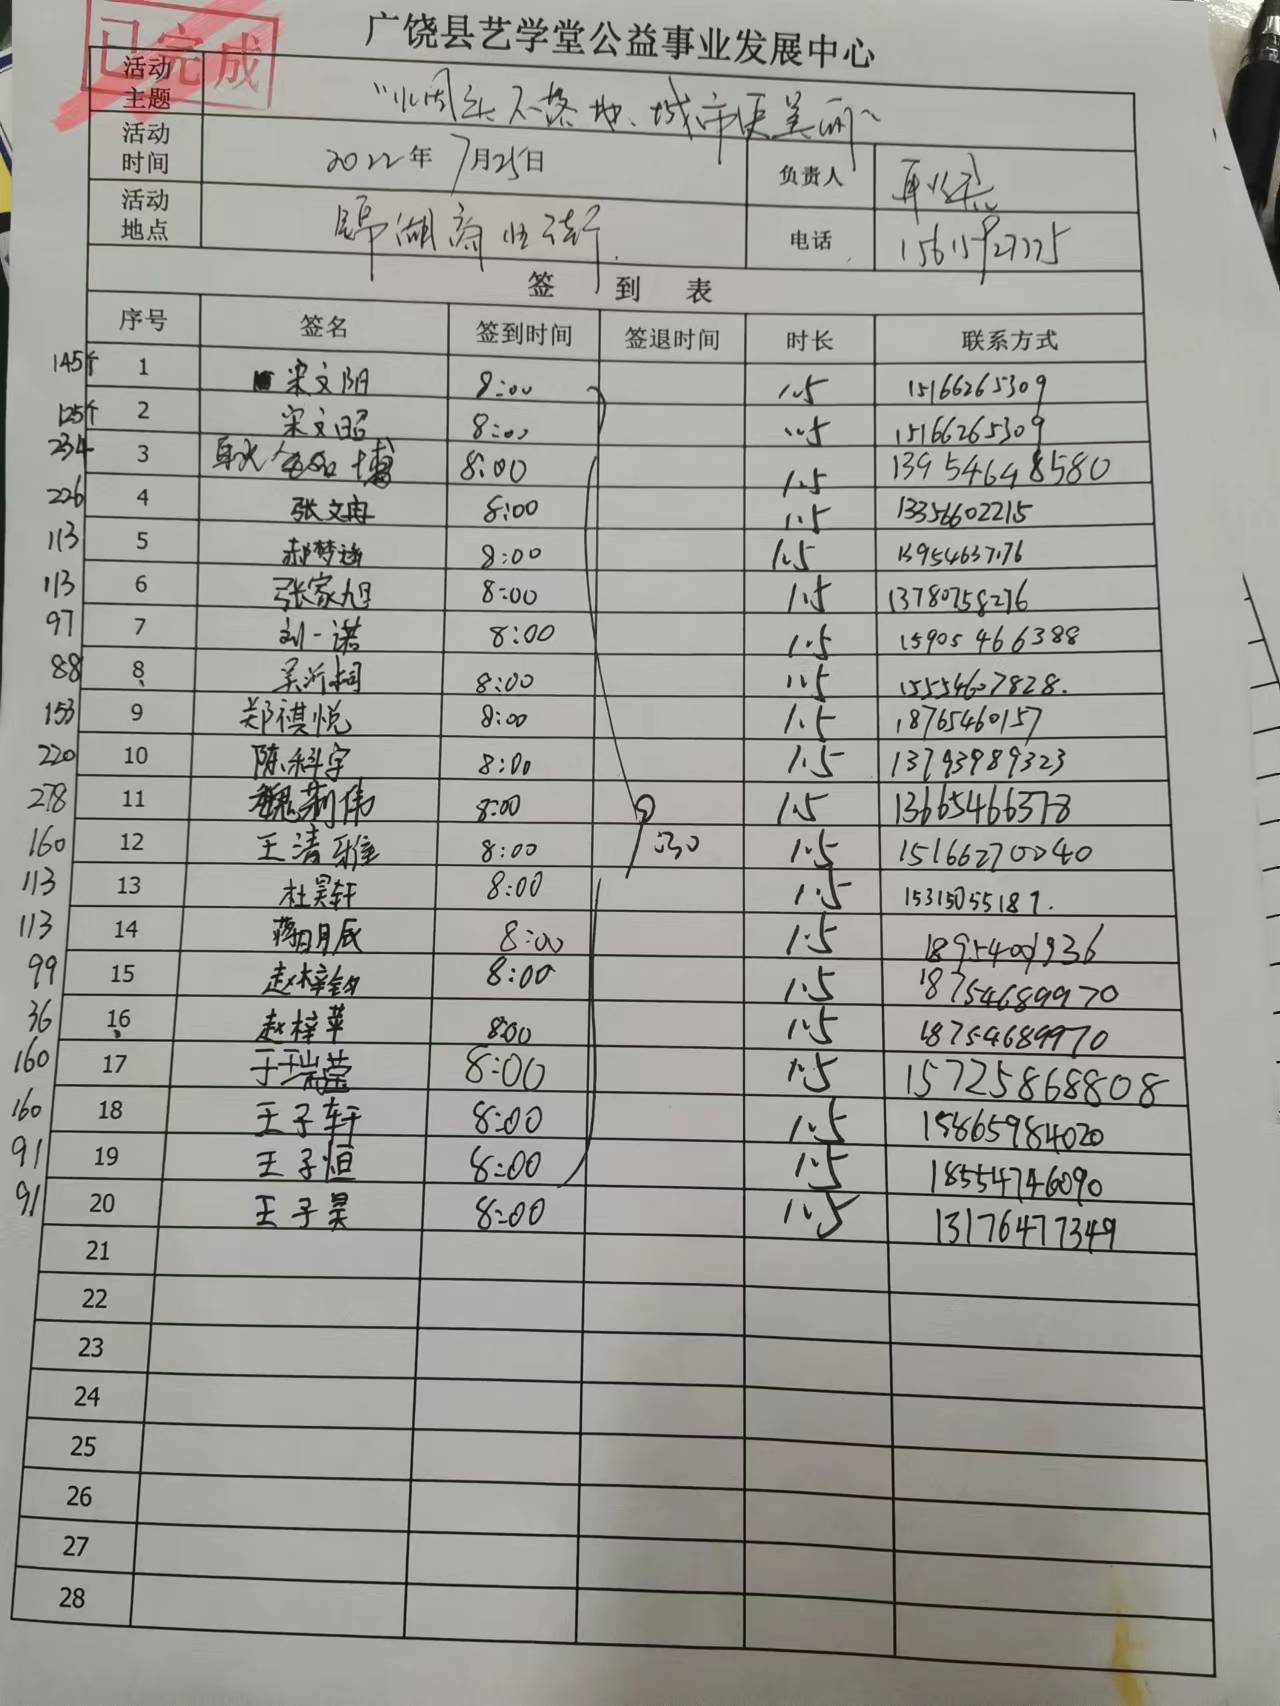 已完成
广饶县艺学堂公益事业发展中心
活动主题 "烟头不落地、城市更美丽"
活动时间 2022年7月25日 负责人
活动地点 湖商业街 电话 15615927775
签到表
序号 签名 签到时间 签退时间 时长 联系方式
145个 1 宋文阳 8:00 1.5 15166265309
125个 2 宋文昭 8:00 1.5 15166265309
234 3 博 8:00 1.5 13954648580
226 4 张文冉 8:00 1.5 13356602215
113 5 郝梦涵 8:00 1.5 13954637176
113 6 张家旭 8:00 1.5 13780758276
97 7 刘一诺 8:00 1.5 15905466388
88 8、 吴沂桐 8:00 1.5 15554607828.
153 9 郑祺悦 8:00 1.5 18765460157
220 10 陈科宇 8:00 1.5 13793989323
278 11 魏莉伟 8:00 9:30 1.5 13665466378
160 12 王清雅 8:00 1.5 15166270040
113 13 杜昊轩 8:00 1.5 15315055187.
113 14 蒋明辰 8:00 1.5
99 15 赵梓钧 8:00 1.5 18754689970
36 16、 赵梓苹 8:00 1.5 18754689970
160 17 于瑞莹 8:00 1.5 15725868808
160 18 王子轩 8:00 1.5 15865984020
91 19 王子恒 8:00 1.5 18554746090
91 20 王子昊 8:00 1.5 13176477349
21
22
23
24
25
26
27
28